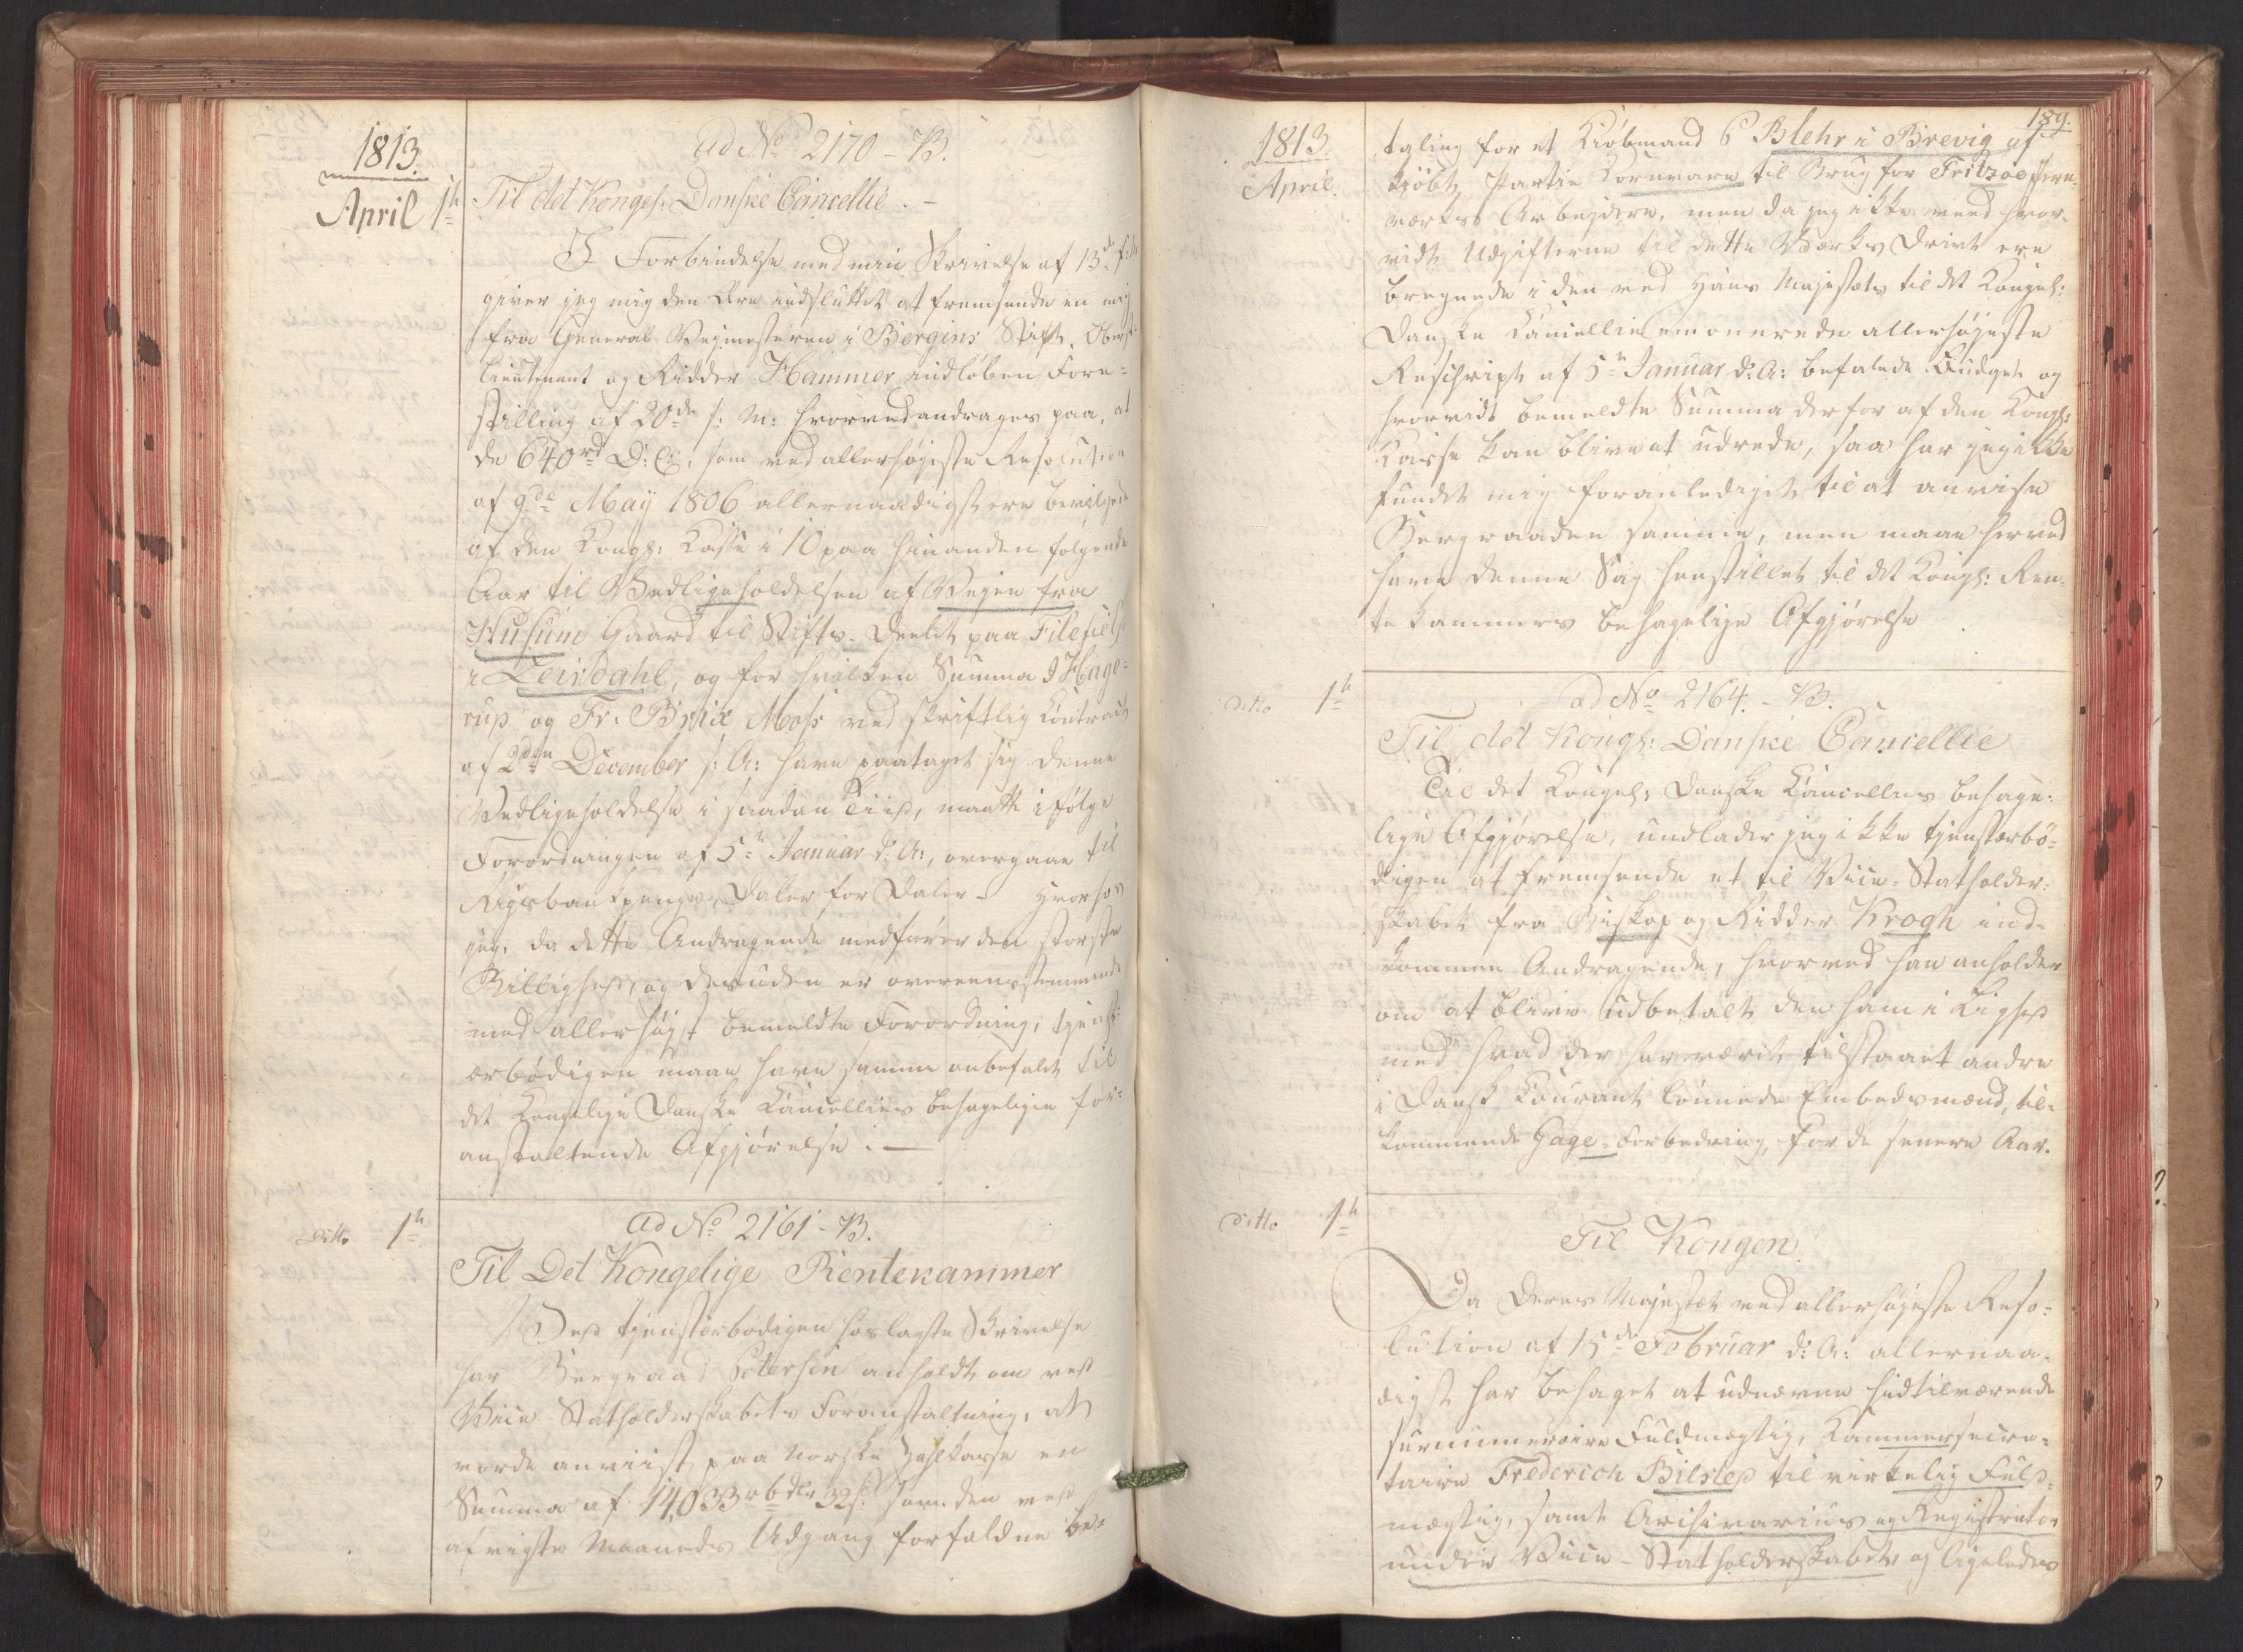 1813.
April 1ste
ad No 2170 - B.
Til det Kongel: Danske Cancellie. -
I Forbindelse med min Skrivelse af 13de f: M:
giver jeg mig den Ære indsluttet at fremsende en mig
fra General Vejmesteren i Bergens Stift, Oberst-
lieutenant og Ridder Hammer indløben Fore-
stilling af 20de f: M: hvorved andrages paa, at
de 640rd D: C:, som ved allerhøjeste Resolution
af 9de May 1806 allernaadigst ere bevilgede
af den Kongl: Kasse i 10 paa hinanden følgende
Aar til Vedligeholdelsen af Vejen fra
Husum Gaard til Stifts-Deelet paa Filefield
i Leirdahl, og for hvilken Summa J Hage-
rup og Fr: Brixe Moss ved skriftlig Contract
af 2den December f: A: have paataget sig denne
Vedligeholdelse i saadan Tiid, maatte ifølge
Forordningen af 5te Januar d: A:, overgaae til
Rigsbankpenge, Daler for Daler - Hvorfor
jeg, da dette Andragende medfører den største
Billighed, og desuden er overeensstemmende
med allerhøjst bemeldte Forordning, tjenst-
ærbødigen maae have samme anbefalet til
det Kongelige Danske Cancellies behagelige for-
anstaltende Afgjørelse. -
Ditto 1ste
ad No 2161 - B.
Til Det Kongelige Rentekammer
Ved tjenstærbødigen hoslagte Skrivelse
har Bergraad Petersen anholdt om ved
Vice-Statholderskabets Foranstaltning, at
vorde anviist paa norske Zahlkasse en
Summa af 14,033 rbdlr 32 s. som den ved
afvigte Maaneds Udgang forfaldne be-
189.
1813
April.
taling for et Kiøbmand P Blehr i Brevig af-
kjøbt Partie Kornvare til Brug for Fritzøe Jern-
værks Arbejdere, men da jeg ikke veed hvor-
vidt Udgifterne til dette Værks Drivt ere
beregnede i den ved Hans Majestæts til det Kongel:
Danske Cancellie emanerede allerhøjeste
Reschript af 5te Januar d: A: befalede Budget og
hvorvidt bemeldte Summa derfor af den Kongl:
Kasse kan blive at udrede, saa har jeg ikke
fundet mig foranlediget til at anvise
Bergraaden samme, men maae herved
have denne Sag henstillet til det Kongl: Ren-
tekammers behagelige Afgjørelse.
Ditto 1ste
ad No 2164. - B.
Til det Kongl: Danske Cancellie
Til det Kongel: Danske Cancellies behage-
lige Afgjørelse, undlader jeg ikke tjenstærbø-
digen at fremsende et til Vice-Statholder-
skabet fra Biskop og Ridder Krogh ind-
kommen Andragende, hvorved han anholder
om at blive udbetalt den ham i Lighed
med hvad der har været tilstaaet andre
i Dansk Courant lønnede Embedsmænd, til-
kommende Gage-Forbedring, for de senere Aar.
Ditto 1ste
Til Kongen
Da Deres Majestæt ved allerhøjeste Reso-
lution af 15de Februar d: A: allernaa-
digst har behaget at udnævne hidtilværende
surnumeraire Fuldmægtig, Kammersecre-
taire Frederich Bilsted til virkelig Fuld-
mægtig, samt Archivarius og Registrator
under Vice-Statholderskabet og ligeledes